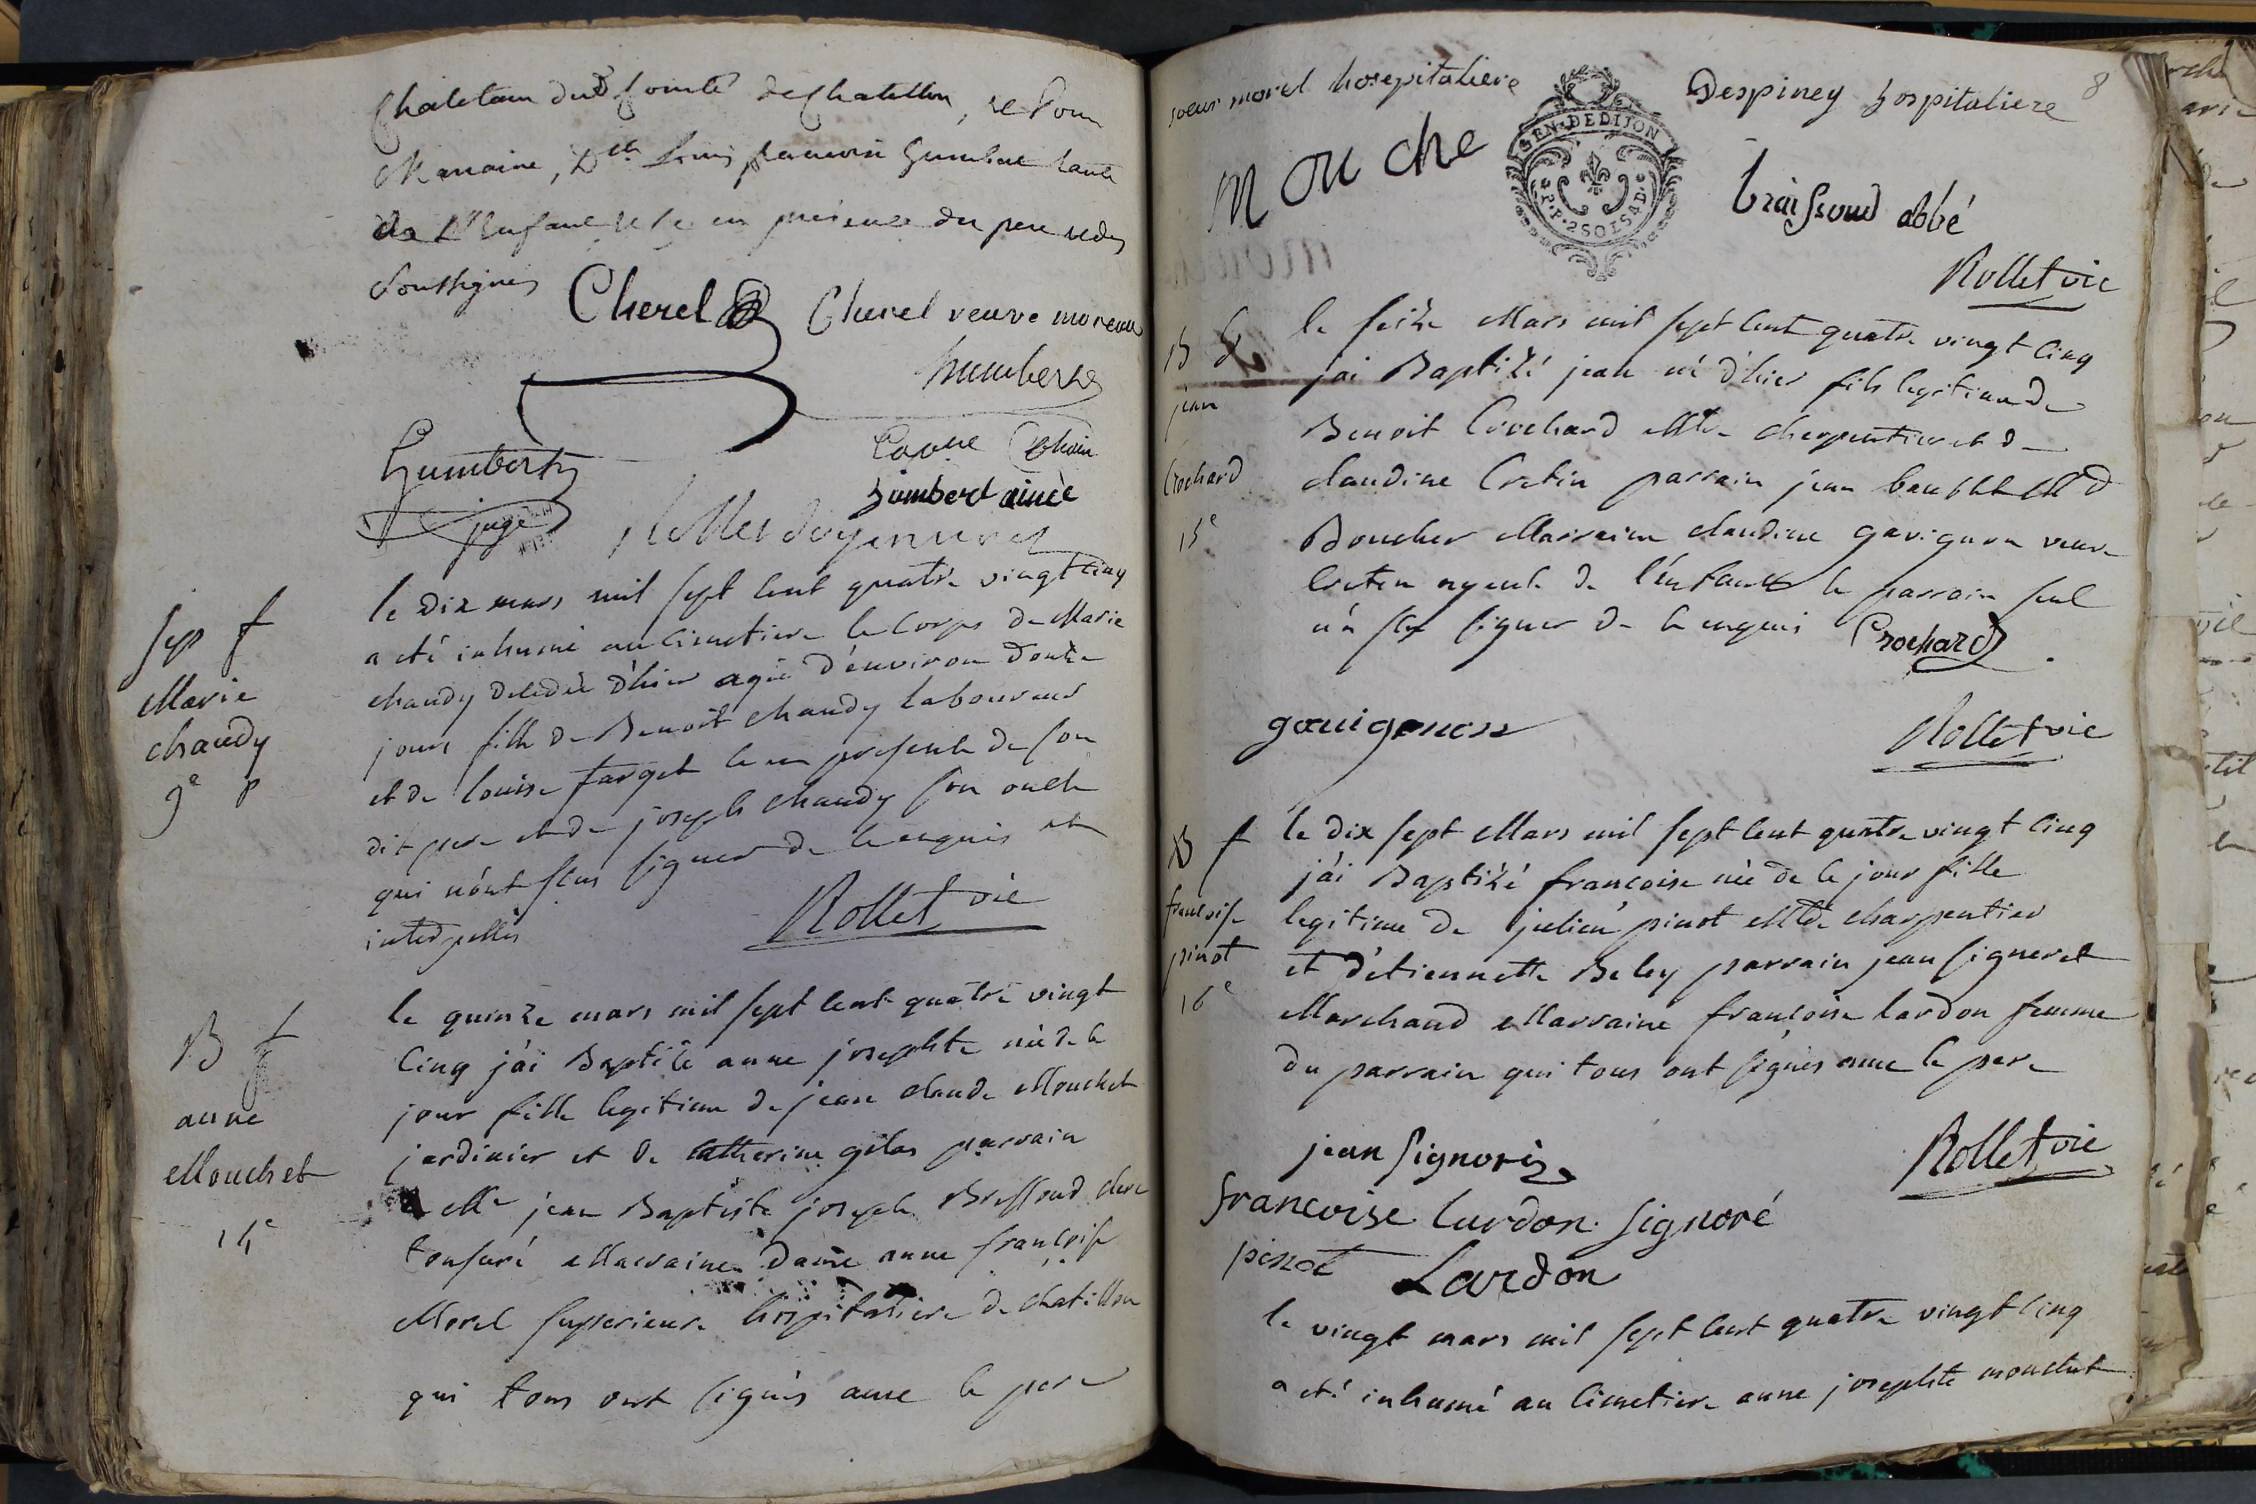 Chatelain dud Comté de Chatillon, et Pour
Marraine, Dlle Humbert tante
de l'Enfant et ce en présence du pere et des
Soussignés
Cherel
Cherel veuve moreau
humbert
Humbert
juge
humbert ainée
le dix mars mil sept cent quatre vingt cinq
a été inhumé au cimetiere le corps de Marie
chaudy decedée d'hier agée d'environ douze
jours fille de Benoit chaudy laboureur
et de louise farget ce en presence de son
dit pere et de joseph chaudy son oncle
qui n'ont scus signer de ce enquis et
interpellés
Rollet vic
Sep f
Marie
chaudy
9e
le quinze mars mil sept cent quatre vingt
cinq j'ai Baptizé anne josephte née de ce
jour fille legitime de jean claude Mouchet
jardinier et de catherine gelas parrain
Mre jean Baptiste joseph Bressoud clerc
tonsuré Marraine Dame anne françoise
Morel superieure hospitaliere de chatillon
qui tous ont signés avec le pere
B f
anne
Mouchet
14e
soeur morel hosepitaliere
Despiney hospitaliere
8
mouche
GEN·DEDIJON
P·P·2SOLS4D·
braissoud abbé
Rollet vic
le seize Mars mil sept cent quatre vingt cinq
j'ai Baptizé jean né d'hier fils legitime de
Benoit Crochard Mtre charpentier et de
claudine Cretin parrain jean baptiste
Boucher Marraine claudine gavignon veuve
Cretin ayeule de l'enfant le parrain seul
n'a scu signer de ce enquis
Crochard
gauignon
Rollet vic
B G
jean
Crochard
15e
le dix sept Mars mil sept cent quatre vingt cinq
j'ai Baptizé françoise née de ce jour fille
legitime de julien pinot Mtre charpentier
et d'etiennette Beley parrain jean signeret
Marchand Marraine françoise lardon femme
du parrain qui tous ont signés avec le pere
B f
françoise
pinot
16e
jean signoré
Rollet vic
francoise lardon signoré
pinot
Lardon
le vingt mars mil sept cent quatre vingt cinq
a été inhumé au cimetiere anne josephte mouchet